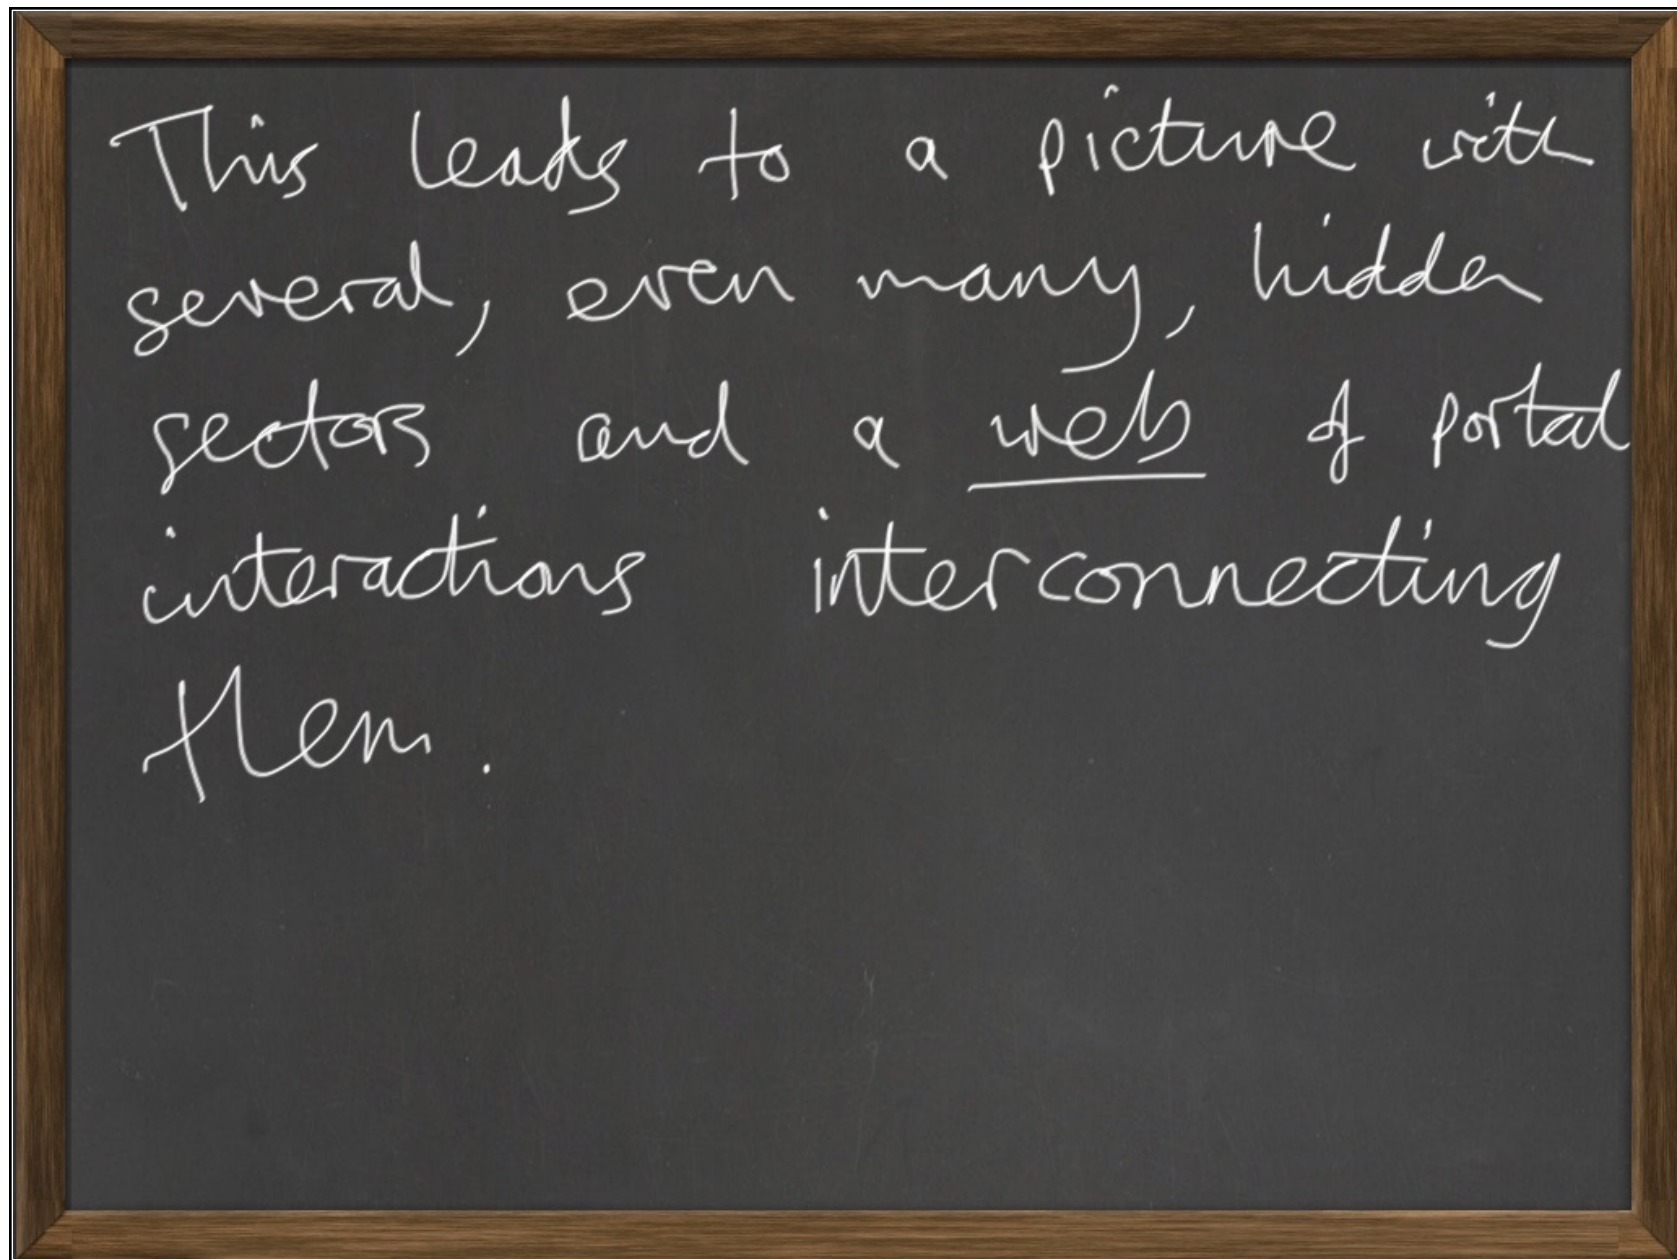 This leads to a picture with
several, even many, hidden
sectors and a web of portal
interactions interconnecting
them.